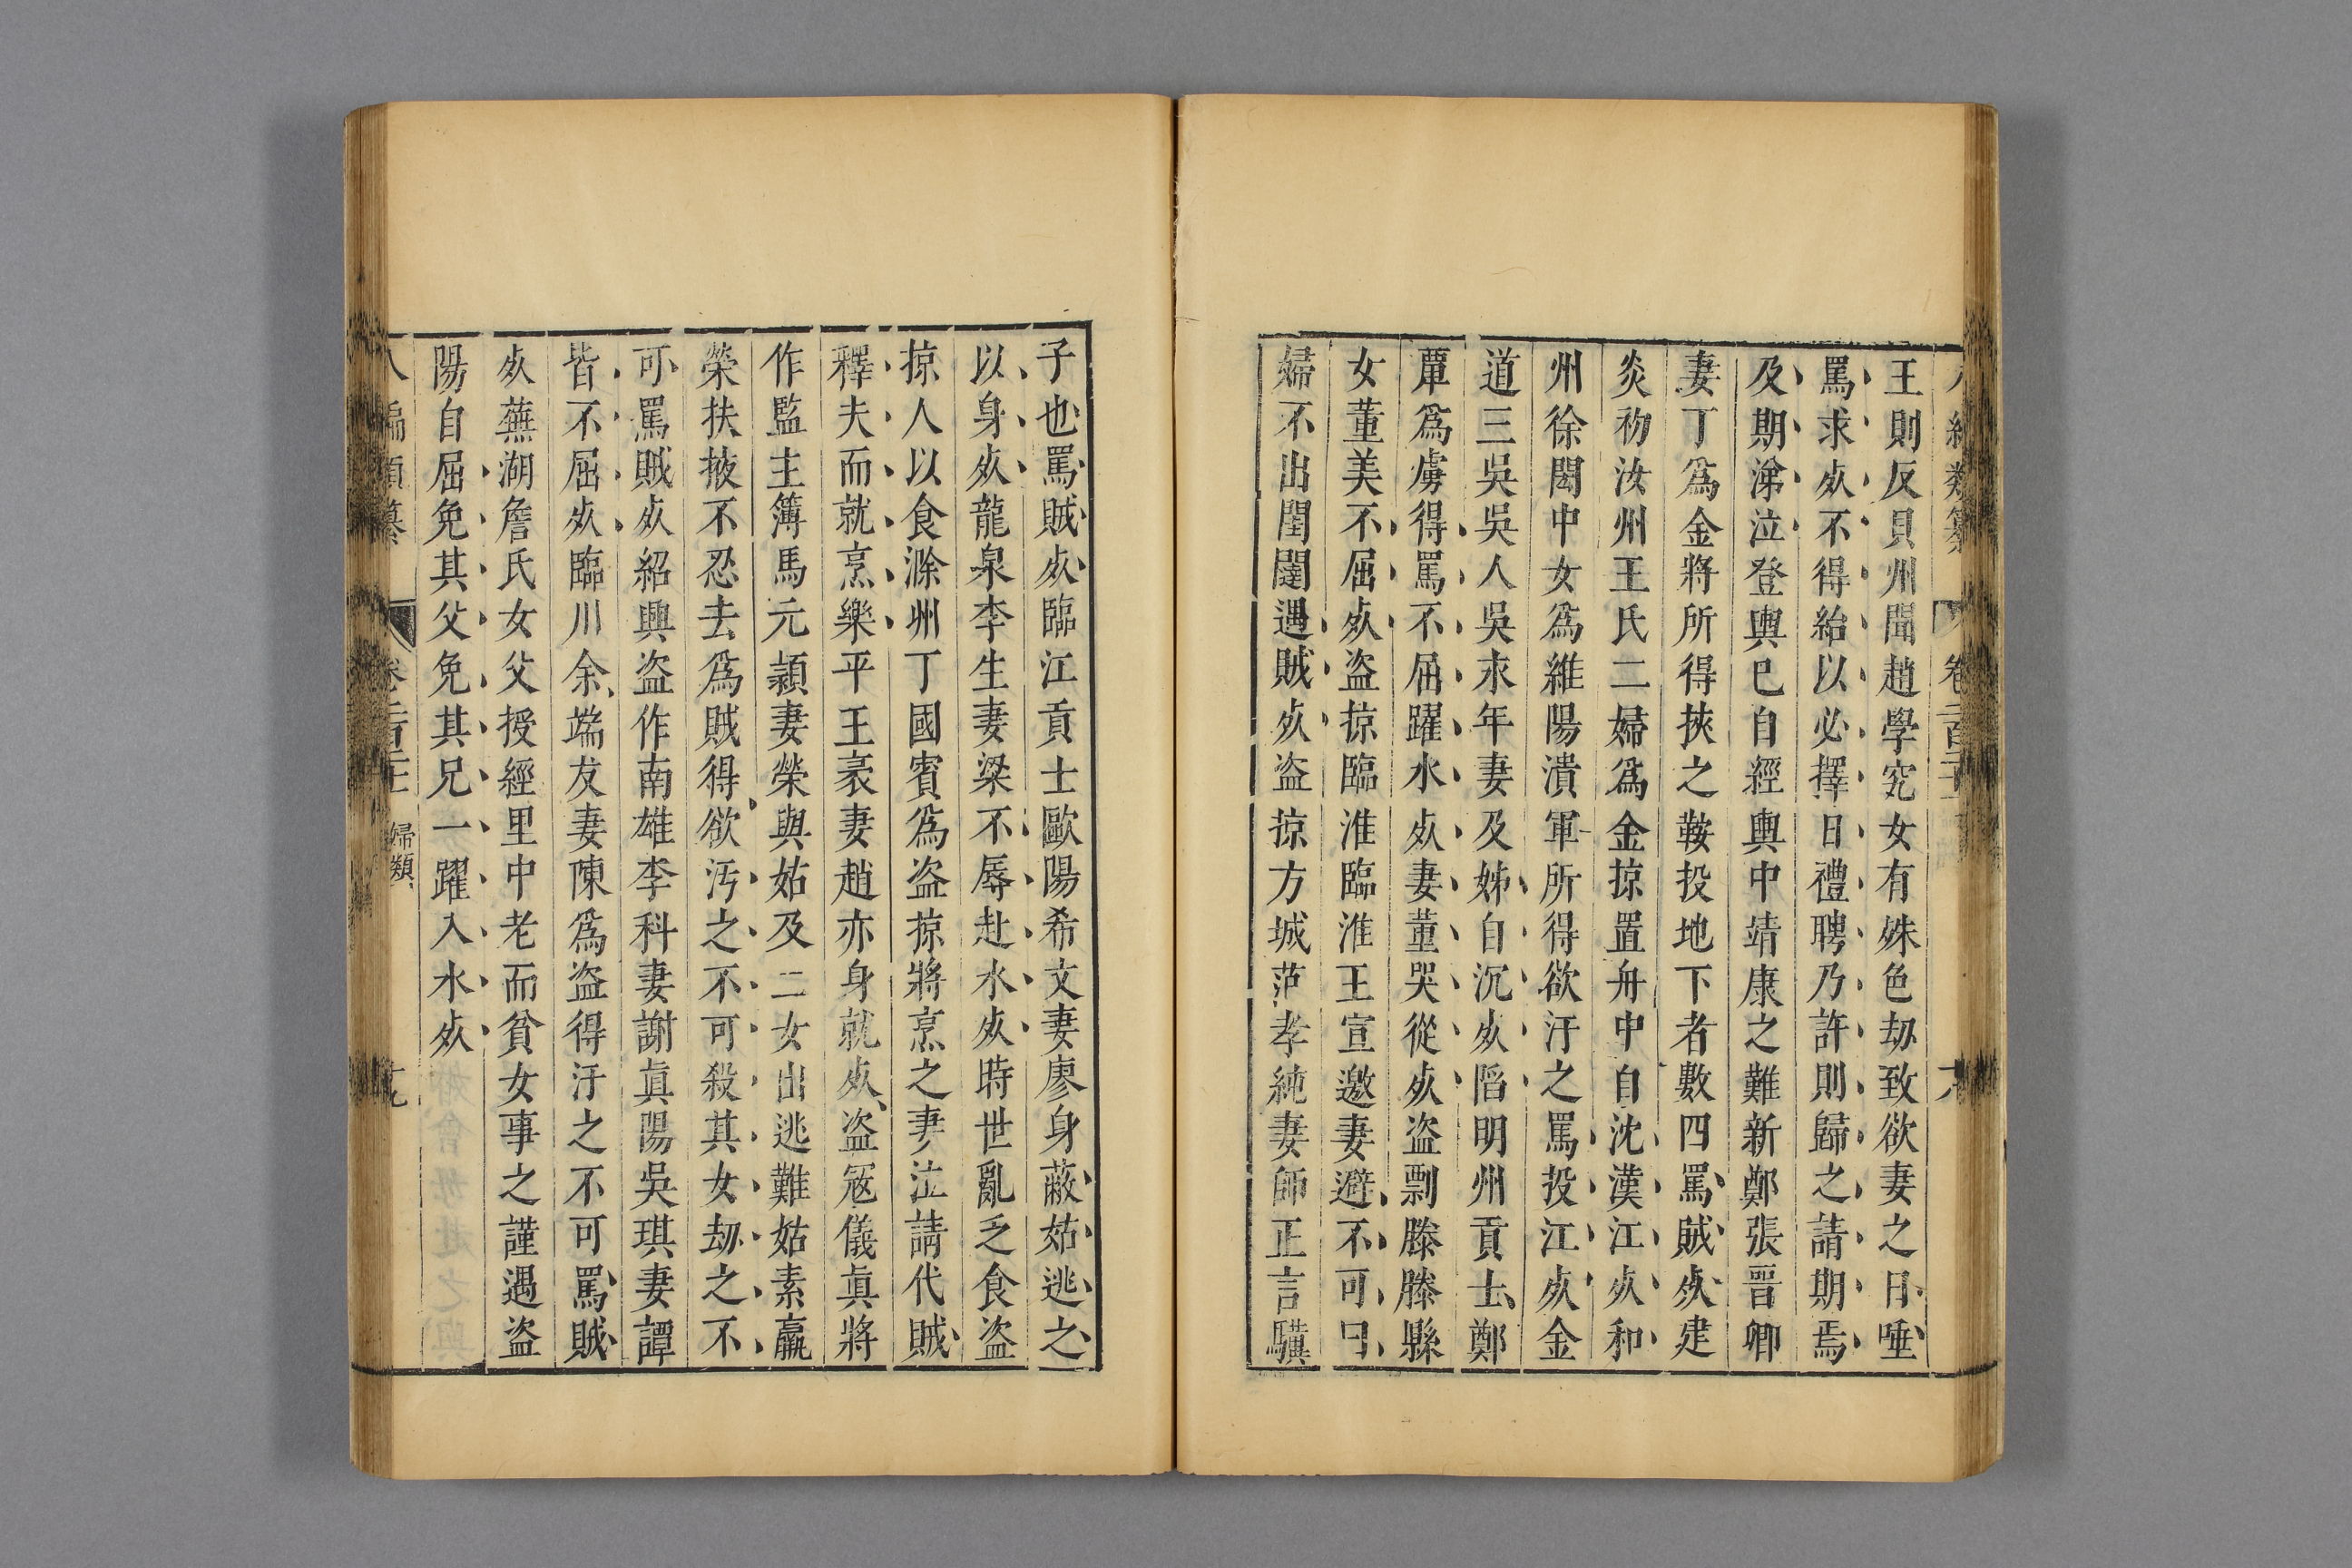 王則反貝州聞趙學究女有姝色刼致欲妻之日唾
罵求㱙不得紿以必擇日禮聘乃許則歸之請期焉
及期涕泣登輿巳自經輿中靖康之難新鄭張晋卿
妻丁爲金將所得挾之鞍投地下者數四罵賊㱙建
炎初汝州王氏二婦爲金掠置舟中自沈漢江㱙和
州徐閎中女爲維陽潰軍所得欲汙之罵投江㱙金
道三吳吳人吳永年妻及姊自沉㱙䧟明州貢士鄭
覃爲虜得罵不屈躍水㱙妻董哭從㱙盜剽滕滕縣
女董美不屈㱙盜掠臨淮臨淮王宣邀妻避不可曰
婦不出閨闥遇賊㱙盜掠方城范孝純妻師正言驥
子也罵賊㱙臨江貢士歐陽希文妻廖身蔽姑逃之
以身㱙龍泉李生妻梁不辱赴水㱙時世亂乏食盜
掠人以食滁州丁國賓爲盜掠將烹之妻泣請代賊
釋夫而就烹樂平王袤妻趙亦身就㱙盜寇儀眞將
作監主簿馬元潁妻榮與姑及二女出逃難姑素羸
榮扶掖不忍去爲賊得欲汚之不可殺其女刼之不
可罵賊㱙紹興盜作南雄李科妻謝眞陽吳琪妻譚
皆不屈㱙臨川余端友妻陳爲盜得汙之不可罵賊
㱙蕪湖詹氏女父授經里中老而貧女事之謹遇盜
陽自屈免其父免其兄一躍入水㱙
八編類纂
婦類